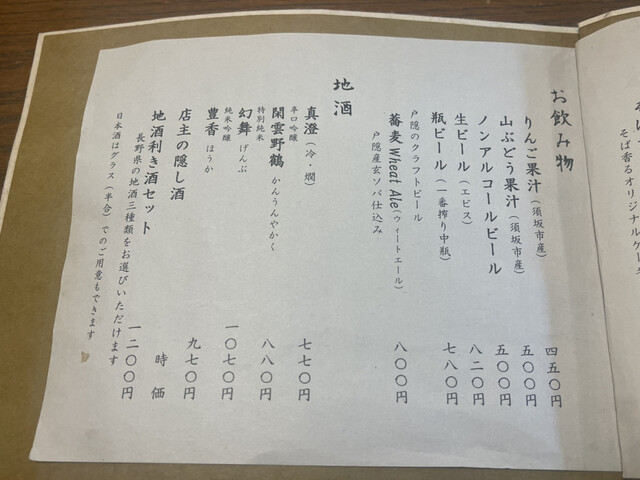 そば香るオリジナルケー
お飲み物
りんご果汁（須坂市産） 四五〇円
山ぶどう果汁（須坂市産） 五〇〇円
ノンアルコールビール 五〇〇円
生ビール（エビス） 八二〇円
瓶ビール（一番搾り中瓶） 七八〇円
戸隠のクラフトビール
蕎麦Wheat Ale（ウィートエール） 八〇〇円
戸隠産玄ソバ仕込み
地酒
真澄（冷・燗） 七七〇円
辛口吟醸
閑雲野鶴 かんうんやかく 八八〇円
特別純米
幻舞 げんぶ 一〇七〇円
純米吟醸
豊香 ほうか 九七〇円
店主の隠し酒 時価
地酒利き酒セット 一二〇〇円
長野県の地酒三種類をお選びいただけます
日本酒はグラス（半合）でのご用意もできます